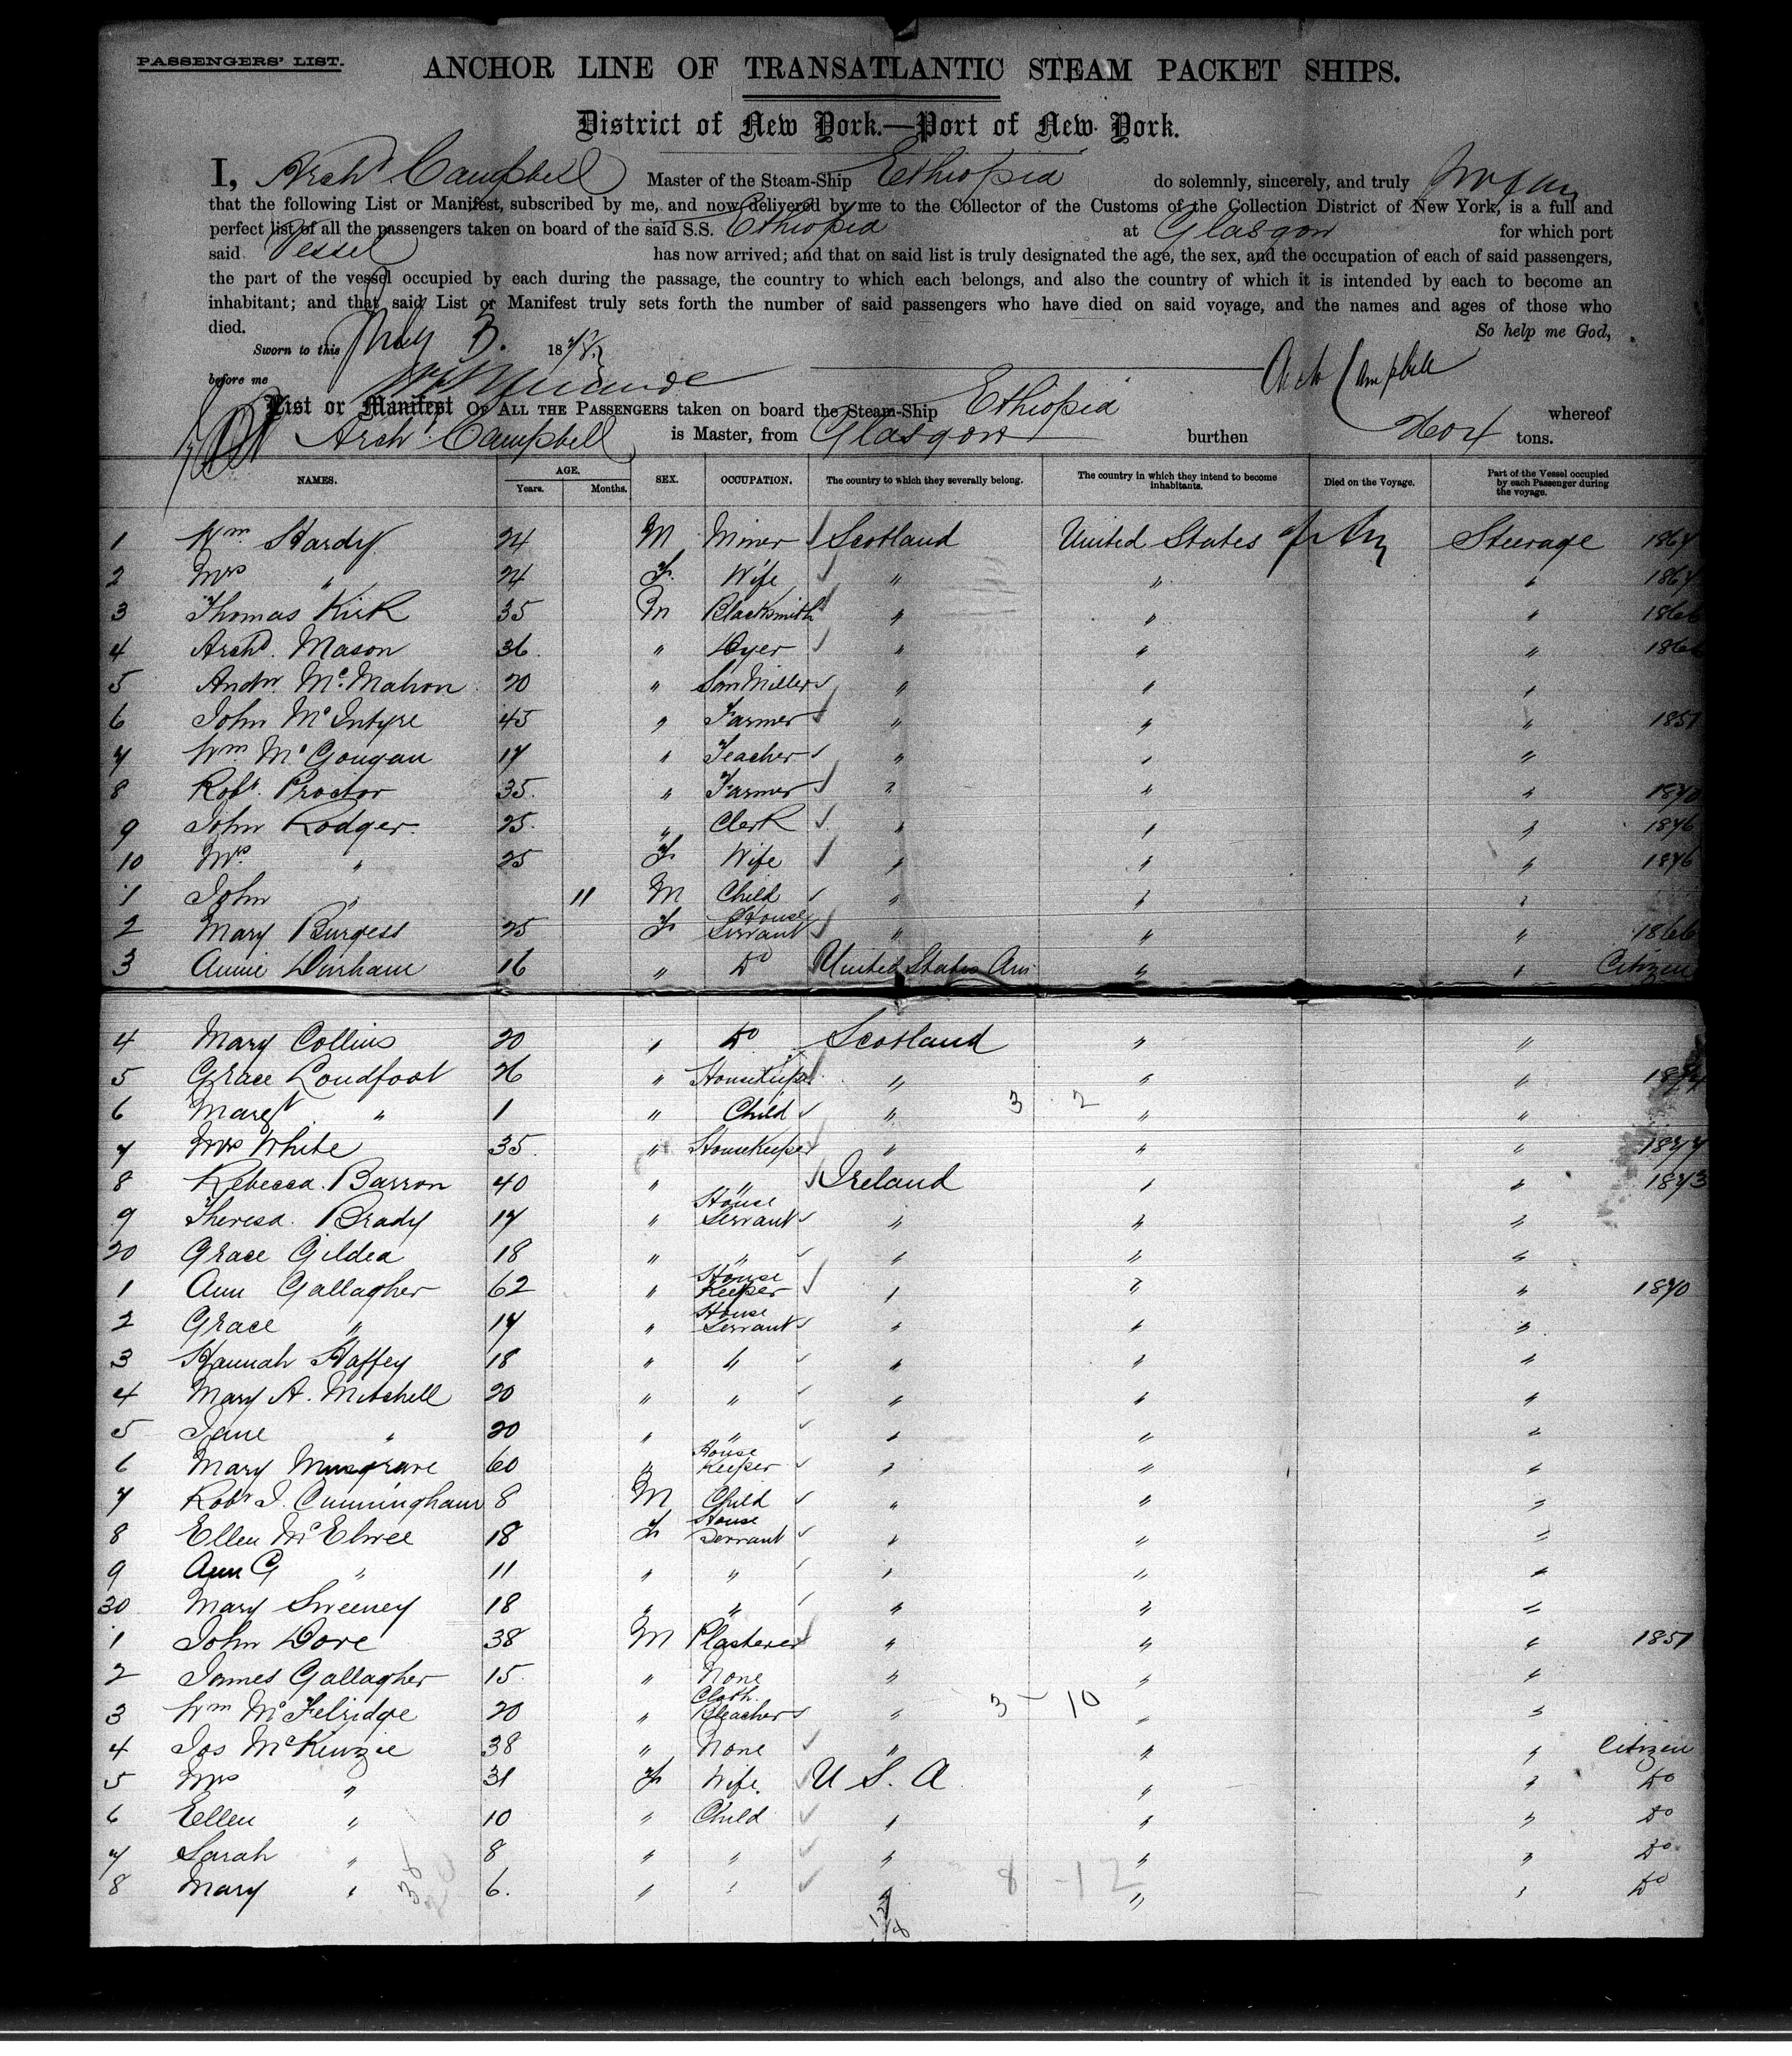 PASSENGERS' LIST.
ANCHOR LINE OF TRANSATLANTIC STEAM PACKET SHIPS.
District of New York.—Port of New York.
I, Archd Campbell Master of the Steam-Ship Ethiopia do solemnly, sincerely, and truly
that the following List or Manifest, subscribed by me, and now delivered by me to the Collector of the Customs of the Collection District of New York, is a full and
perfect list of all the passengers taken on board of the said S.S. Ethiopia at Glasgow for which port
said Vessel has now arrived; and that on said list is truly designated the age, the sex, and the occupation of each of said passengers,
the part of the vessel occupied by each during the passage, the country to which each belongs, and also the country of which it is intended by each to become an
inhabitant; and that said List or Manifest truly sets forth the number of said passengers who have died on said voyage, and the names and ages of those who
died. So help me God,
Sworn to this 3. 18
before me Arch Campbell
List or Manifest OF ALL THE PASSENGERS taken on board the Steam-Ship Ethiopia whereof
Archd. Campbell is Master, from Glasgow burthen tons.
NAMES. AGE. Years. Months. SEX. OCCUPATION. The country to which they severally belong. The country in which they intend to become inhabitants. Died on the Voyage. Part of the Vessel occupied by each Passenger during the voyage.
1 Wm Hardy 24 M Miner Scotland United States of Am Steerage 1867
2 Mrs " 24 F. Wife " " " 1867
3 Thomas Kirk 35 M Blacksmith " " " 1866
4 Archd. Mason 36. " Dyer " " "
5 Andw. McMahon 20 " " " "
6 John McIntyre 45 " Farmer " " " 1851
7 Wm. McGougan 17 " Teacher " " "
8 Robt. Proctor 35. " Farmer " " " 1870
9 John Rodger. 25. " Clerk " " " 1876
10 Mrs. " 25 F Wife " " " 1876
1 John " 11 M Child " " "
2 Mary Burgess 25 F House Servant " " " 1866
3 Annie Durham 16 " Do United States Am " " Citizen
4 Mary Collins 20 " Do Scotland " "
5 Grace Loudfoot 26 " Housekeeper " " "
6 Margt " 1 " Child " 3 2 " "
7 Mrs White 35. " Housekeeper " " " 1877
8 Rebecca Barron 40 " " Ireland " " 1873
9 Theresa Brady 17 " House Servant " " "
20 Grace Gildea 18 " " " " "
1 Ann Gallagher 62 " House Keeper " " " 1870
2 Grace " 17 " House Servant " " "
3 Hannah Haffey 18 " " " " "
4 Mary A. Mitchell 20 " " " " "
5 Jane " 20 " " " " "
6 Mary Musgrave 60 " House Keeper " " "
7 Robt J. Cunningham 8 M Child " " "
8 Ellen McElwee 18 F House Servant " " "
9 Ann G " 11 " " " " "
30 Mary Sweeney 18 " " " " "
1 John Dove 38 M Plasterer " " " 1851
2 James Gallagher 15. " None " " "
3 Wm McFelridge 20 " Cloth Bleacher " 3 - 10 " "
4 Jos McKenzie 38 " None " " " Citizen
5 Mrs " 31 F Wife. U. S. A " " Do
6 Ellen " 10 " Child " " " Do
7 Sarah " 8 " " " " " Do
8 Mary " 6. " " " 8 - 12 " " Do